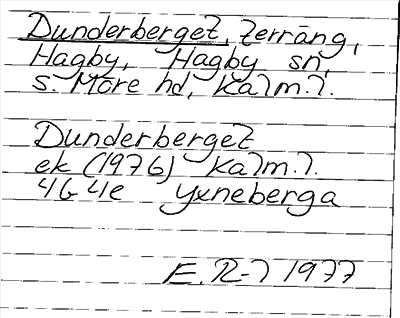 Dunderberget, terräng,
Hagby, Hagby sn,
S. Möre hd, Kalm.l.
Dunderberget
ek (1976) Kalm.l.
4G 4e yxneberga
E. R-l 1977